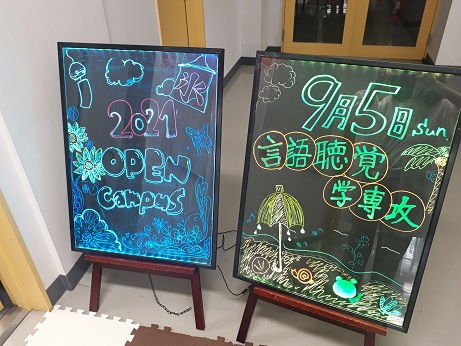 氷
2021
OPEN
Campus
9月5日 sun
言語聴覚
学専攻